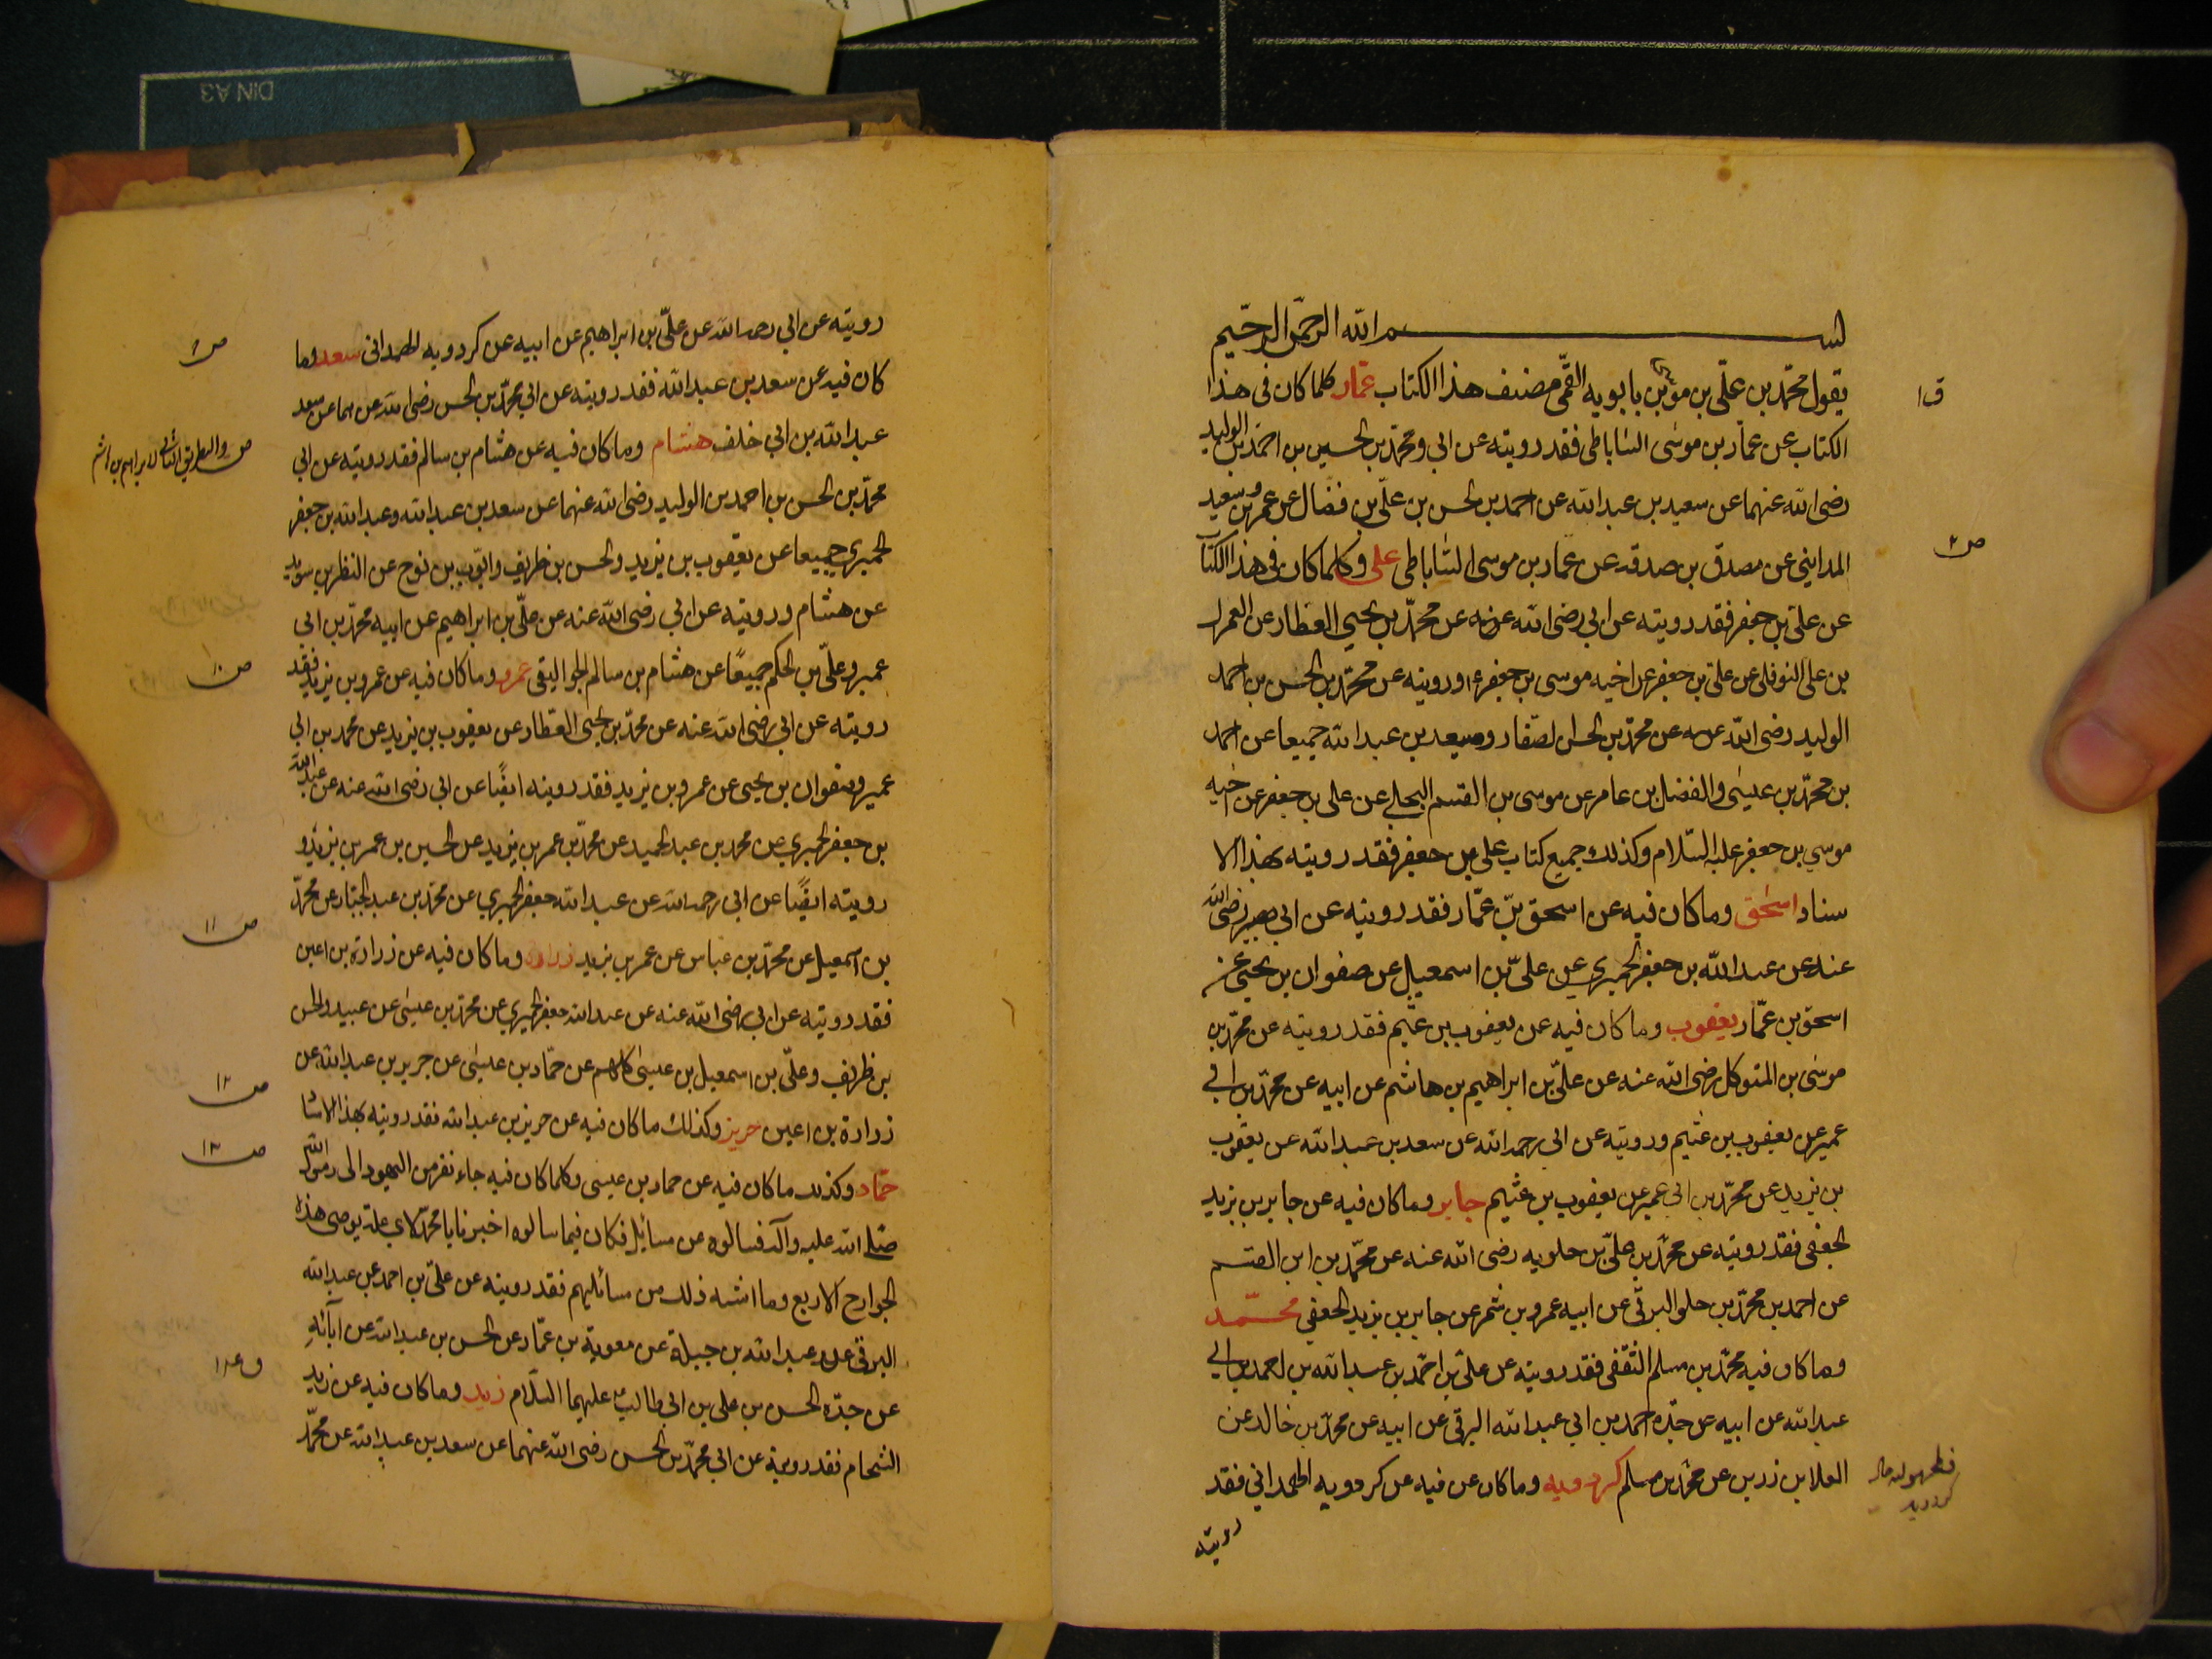 بسم الله الرحمن الرحيم
يقول محمّد بن علّى بن موسى بن بابويه القمّى مصنف هذا الكتاب عمّار كلما كان فى هذا
الكتاب عن عمّار بن موسى الساباطى فقد رويته عن ابى ومحمّد بن الحسين بن احمد بن الوليد
رضى الله عنهما عن سعيد بن عبد الله عن احمد بن الحسن بن علّى بن فضال عن عمرو بن سعيد
المداينى عن مصدق بن صدقه عن عمار بن موسى الساباطى على وكلما كان فى هذا الكتاب
عن على بن جعفر فقد رويته عن ابى رضى الله عنه عن محمّد بن يحيى العطار عن العمر
بن على النوفلى عن على بن جعفر عن اخيه موسى بن جعفر ع ورويته عن محمّد بن الحسن بن احمد
الوليد رضى الله عنه عن محمّد بن الحسن الصفار وسعيد بن عبد الله جميعا عن احمد
بن محمّد بن عيسى والفضل بن عامر عن موسى بن القسم البجلى عن على بن جعفر عن اخيه
موسى بن جعفر عليه السّلام وكذلك جميع كتاب على بن جعفر فقد رويته بهذا الا
سناد اسحق وما كان فيه عن اسحق بن عمّار فقد رويته عن ابى رضى الله
عنه عن عبد الله بن جعفر الحميرى عن علىّ بن اسمعيل عن صفوان بن يحيى عن
اسحق بن عمّار يعقوب وما كان فيه عن يعقوب بن عثيم فقد رويته عن محمّد بن
موسى بن المتوكل رضى الله عنه عن علىّ بن ابراهيم بن هاشم عن ابيه عن محمّد بن ابى
عمير عن يعقوب بن عثيم ورويته عن ابى رحمه الله عن سعد بن عبد الله عن يعقوب
بن يزيد عن محمّد بن ابى عمير عن يعقوب بن عثيم جابر وما كان فيه عن جابر بن يزيد
الجعفى فقد رويته عن محمّد بن علىّ بن حلويه رضى الله عنه عن محمّد بن ابن القسم
عن احمد بن محمّد بن حلو البرقى عن ابيه عمرو بن شمر عن جابر بن يزيد الجعفى محمّد
وما كان فيه محمّد بن مسلم الثقفى فقد رويته عن علىّ بن احمد بن عبد الله بن احمد بن ابى
عبد الله عن ابيه عن جدّه احمد بن ابى عبد الله البرقى عن ابيه عن محمّد بن خالد عن
العلا بن زرين عن محمّد بن مسلم كردويه وما كان عن فيه عن كردويه الهمدانى فقد
رويته
ق ١
ص ٢
رويته عن ابى رحمه الله عن علىّ بن ابراهيم عن ابيه عن كردويه الهمدانى سعد وما
كان فيه عن سعد بن عبد الله فقد رويته عن ابى محمّد بن الحسن رضى الله عنهما عن سعد
عبد الله بن ابى خلف هشام وما كان فيه عن هشام بن سالم فقد رويته عن ابى
محمّد بن الحسن بن احمد بن الوليد رضى الله عنهما عن سعد بن عبد الله وعبد الله بن جعفر
الحميرى جميعا عن يعقوب بن يزيد والحسن بن ظريف وايّوب بن نوح عن النظر بن سويد
عن هشام ورويته عن ابى رضى الله عنه عن علّى بن ابراهيم عن ابيه محمّد بن ابى
عمير وعلىّ بن الحكم جميعًا عن هشام بن سالم الجواليقى عمرو وما كان فيه عن عمرو بن يزيد فقد
رويته عن ابى رضى الله عنه عن محمّد بن يحيى العطار عن يعقوب بن يزيد عن محمد بن ابى
عمير وصفوان بن يحيى عن عمرو بن يزيد فقد رويته ايضًا عن ابى رضى الله عنه عن عبد الله
بن جعفر الحميرى عن محمد بن عبد الحميد عن محمّد بن عمر بن يزيد عن الحسين بن عمر بن يزيد و
رويته ايضًا عن ابى رحمه الله عن عبد الله جعفر الحميرى عن محمّد بن عبد الجبّار عن محمّد
بن اسمعيل عن محمّد بن عباس عن عمر بن يزيد زرارة وما كان فيه عن زرارة بن اعين
فقد رويته عن ابى رضى الله عنه عن عبد الله جعفر الحميرى عن محمّد بن عيسى عن عبيد والحسن
بن ظريف وعلّى بن اسمعيل بن عيسى كلهم عن حمّاد بن عيسى عن جرير بن عبد الله عن
زرارة بن اعين حريز وكذلك ما كان فيه عن حريز بن عبد الله فقد رويته بهذا الاسنا
حمّاد وكذلك ما كان فيه عن حماد بن عيسى وكلما كان فيه جاء نفر من اليهود الى رسول الله
صلى الله عليه وآله فسالوه عن مسائل فكان فيما سالوه اخبرنا يا محمّد لاى علة يوضى هذه
الجوارح الاربع وما اشبه ذلك من مسائلهم فقد رويته عن علىّ بن احمد عن عبد الله
البرقى عن عبد الله بن جبلة عن معوية بن عمّار عن الحسن بن عبد الله عن آبائه
عن جدّه الحسن بن على بن ابى طالب عليهما السلام زيد وما كان فيه عن زيد
الشحام فقد رويته عن ابى محمّد بن الحسن رضى الله عنهما عن سعد بن عبد الله عن محمّد
ص ٨
ص والطريق الثانى لابراهيم بن هاشم
ص ١٠
ص ١١
ص ١٢
ص ١٣